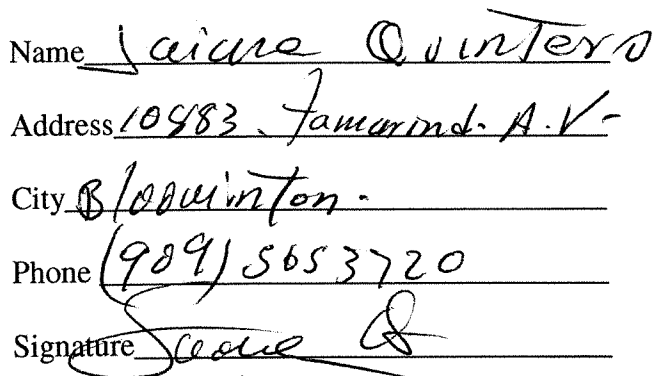 Name Quintero
Address 10883. Tamarind. A.V-
City Bloowinton.
Phone (909) 5653720
Signature